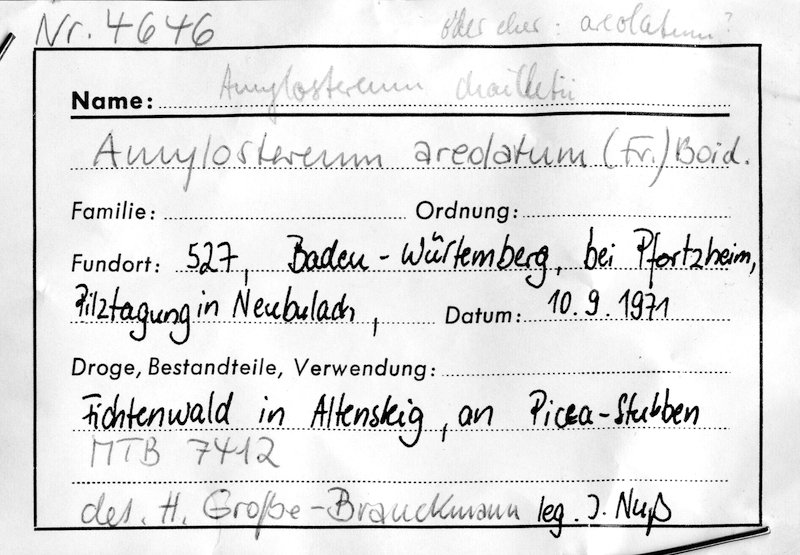 Nr. 4646 oder eher: areolatum?
Name: Amylostereum chailletii
Amylostereum areolatum (Fr.) Boid.
Familie: Ordnung:
Fundort: 527, Baden-Württemberg, bei Pfortzheim,
Pilztagung in Neubulach, Datum: 10.9.1971
Droge, Bestandteile, Verwendung:
Fichtenwald in Altensteig, an Picea-Stubben
MTB 7412
det. H. Große-Brauckmann leg. J. Nuß